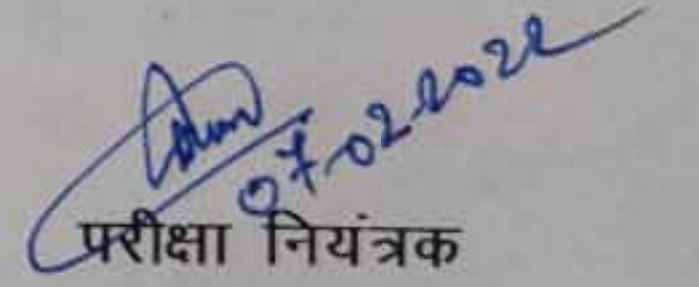 07-02-2022
परीक्षा नियंत्रक